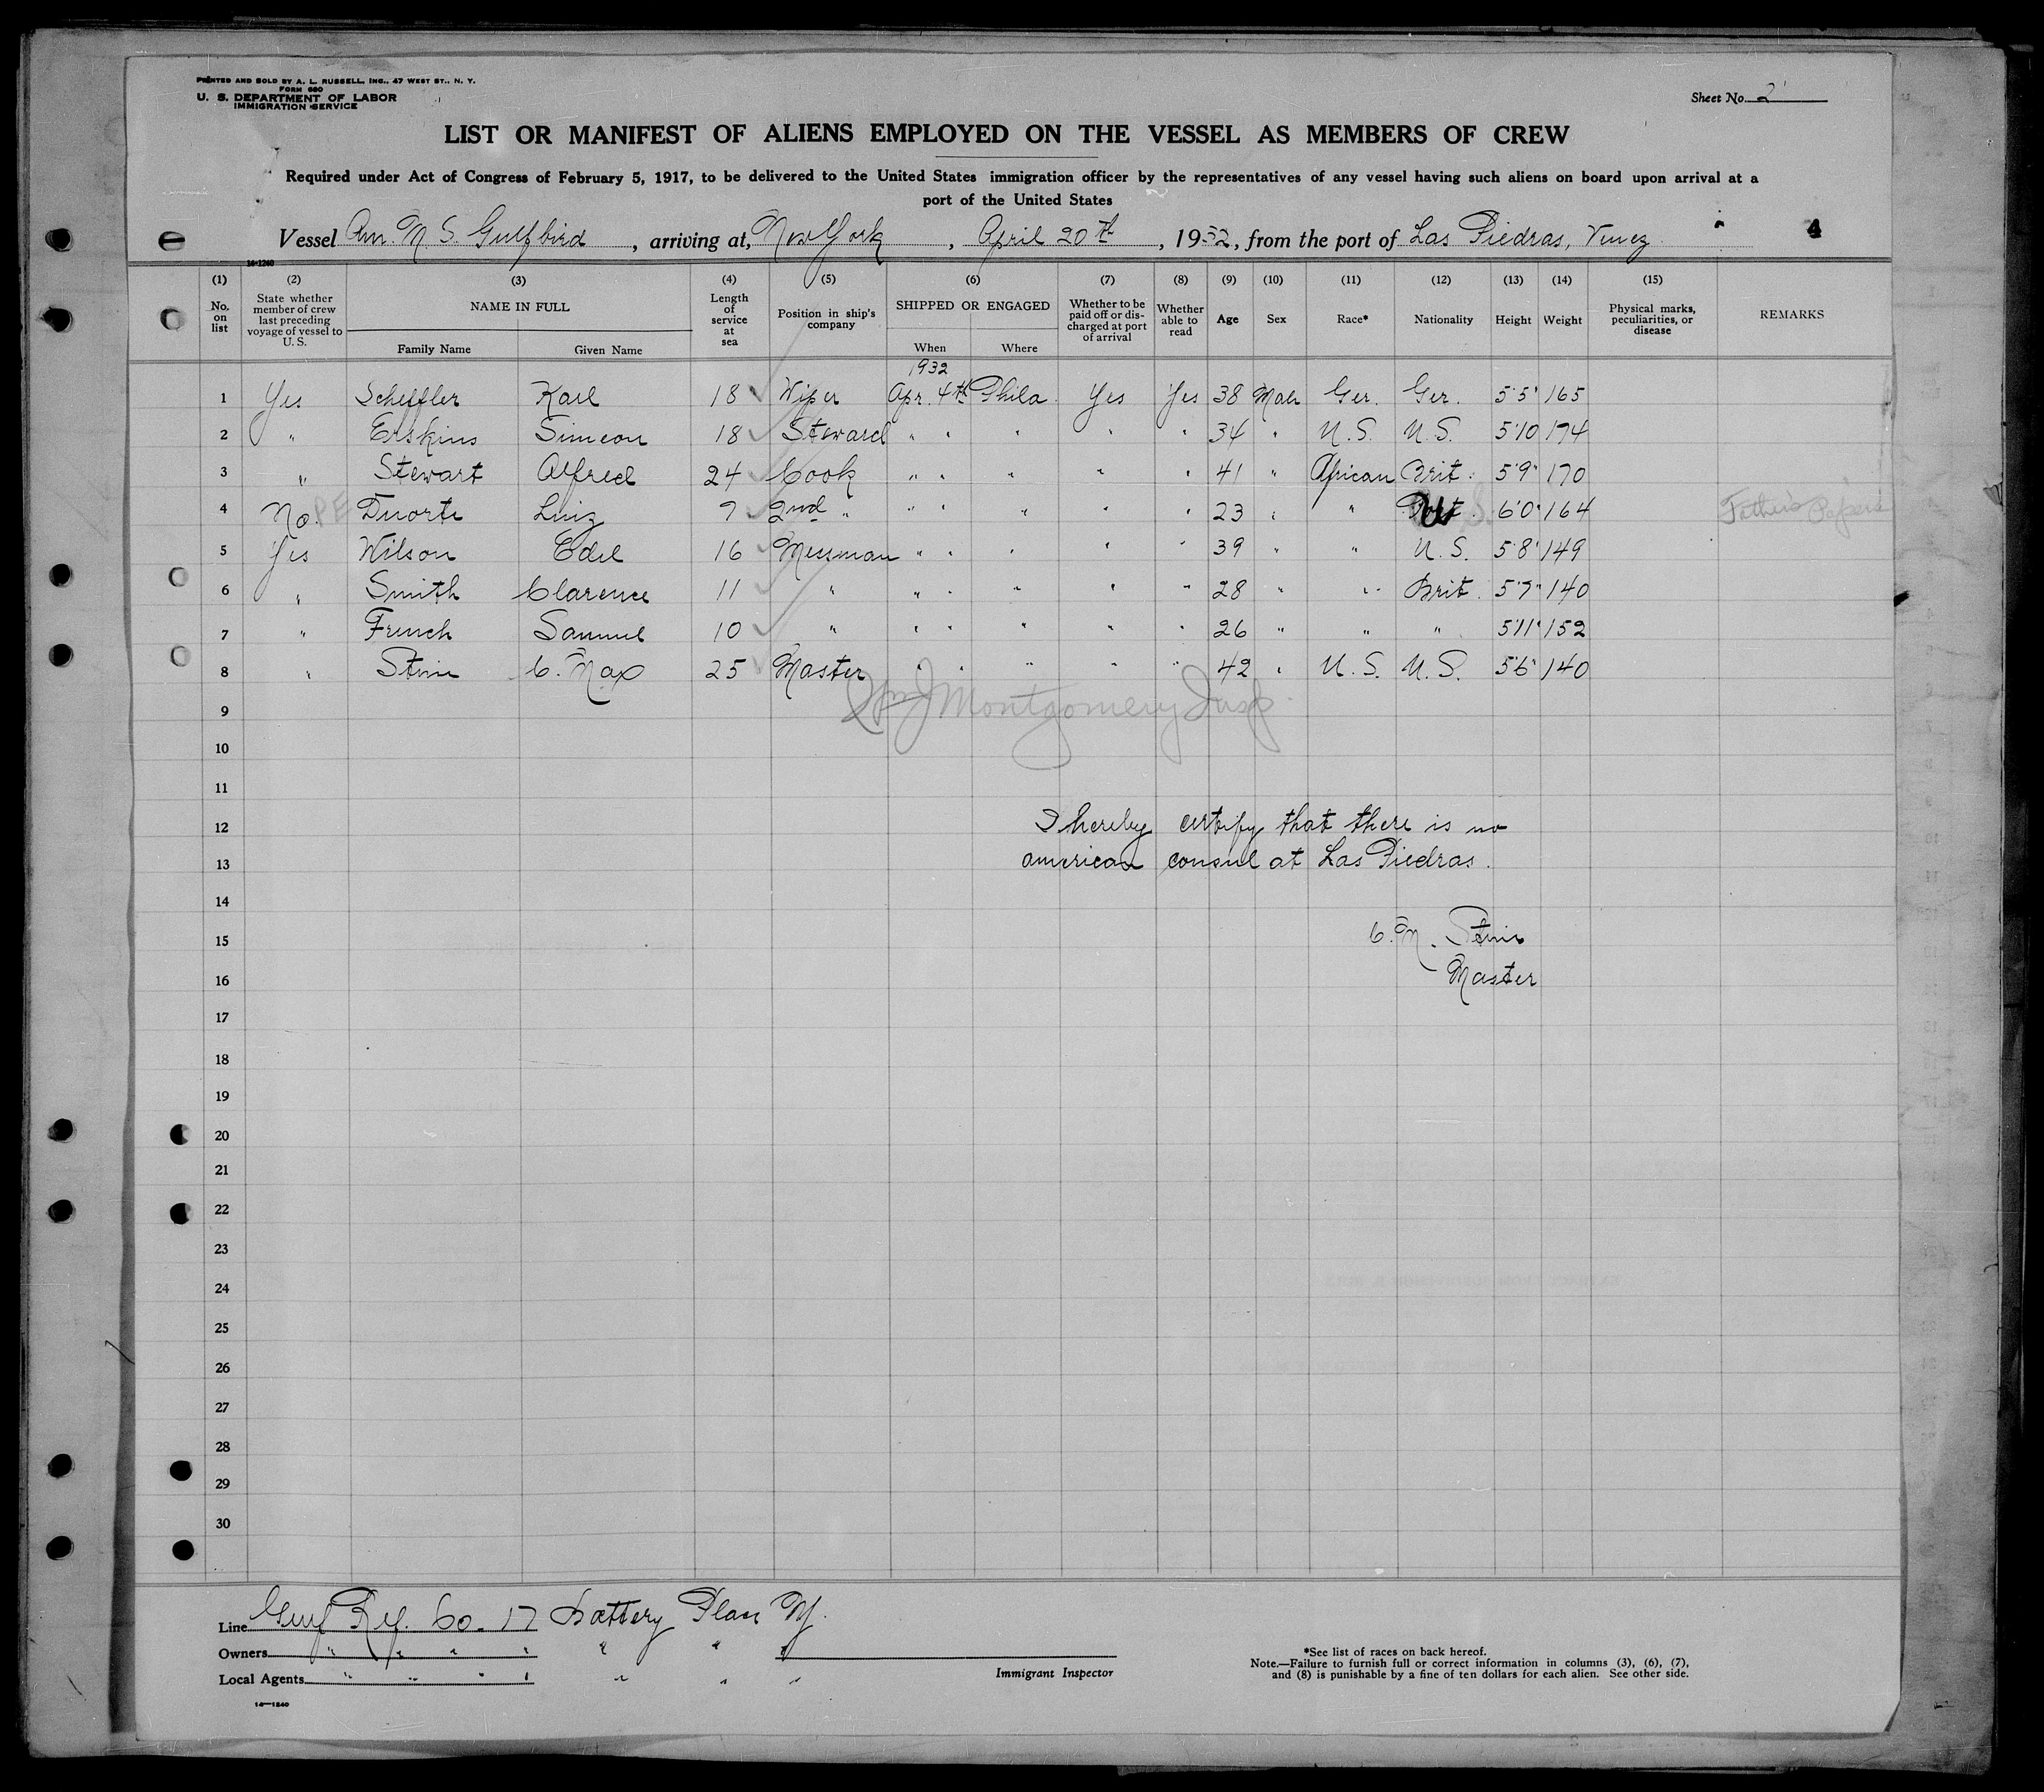 PRINTED AND SOLD BY A. L. RUSSELL, INC., 47 WEST ST., N. Y.
FORM 680
U. S. DEPARTMENT OF LABOR
IMMIGRATION SERVICE
Sheet No. 2
LIST OR MANIFEST OF ALIENS EMPLOYED ON THE VESSEL AS MEMBERS OF CREW
Required under Act of Congress of February 5, 1917, to be delivered to the United States immigration officer by the representatives of any vessel having such aliens on board upon arrival at a
port of the United States
Vessel Am. M. S. Gulfbird, arriving at, New York, April 20th, 1932, from the port of Las Piedras, Venez 4
14-1240
(1) (2) (3) (4) (5) (6) (7) (8) (9) (10) (11) (12) (13) (14) (15)
No. on list
State whether member of crew last preceding voyage of vessel to U. S.
NAME IN FULL
Family Name
Given Name
Length of service at sea
Position in ship's company
SHIPPED OR ENGAGED
When
Where
Whether to be paid off or discharged at port of arrival
Whether able to read
Age
Sex
Race*
Nationality
Height
Weight
Physical marks, peculiarities, or disease
REMARKS
1932
1 Yes Scheffler Karl 18 Wiper Apr. 4th Phila. Yes Yes 38 Male Ger. Ger. 5'5" 165
2 " Erskins Simeon 18 Steward " " " " " 34 " U.S. U.S. 5'10 174
3 " Stewart Alfred 24 Cook " " " " " 41 " African Brit. 5'9" 170
4 No. PE Duorte Luiz 7 2nd " " " " " " 23 " " U.S. 6'0" 164 Father's Papers
5 Yes Wilson Edel 16 Messman " " " " " 39 " " U.S. 5'8" 149
6 " Smith Clarence 11 " " " " " " 28 " " Brit. 5'7" 140
7 " French Samuel 10 " " " " " " 26 " " " 5'11" 152
8 " Stein C. Max 25 Master " " " " " 42 " U.S. U.S. 5'6" 140
9
Wm J Montgomery Insp.
10
11
12 I hereby certify that there is no
13 american consul at Las Piedras.
14
15 C. M. Stein
16 Master
17
18
19
20
21
22
23
24
25
26
27
28
29
30
Line Gulf Ref. Co. 17 Battery Place NY.
Owners " " " " " " "
Local Agents " " " " " " "
Immigrant Inspector
*See list of races on back hereof.
Note.—Failure to furnish full or correct information in columns (3), (6), (7),
and (8) is punishable by a fine of ten dollars for each alien. See other side.
14—1240